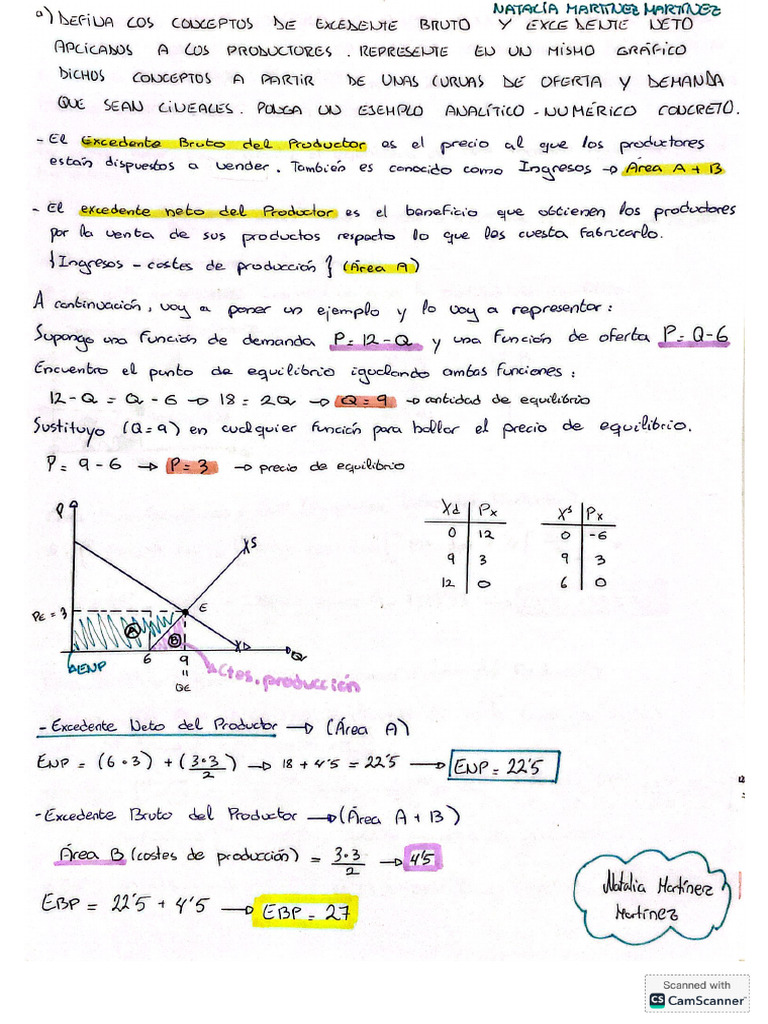 NATALIA MARTINEZ MARTINEZ
a) DEFINA LOS CONCEPTOS DE EXCEDENTE BRUTO Y EXCEDENTE NETO
APLICADOS A LOS PRODUCTORES. REPRESENTE EN UN MISMO GRÁFICO
DICHOS CONCEPTOS A PARTIR DE UNAS CURVAS DE OFERTA Y DEMANDA
QUE SEAN LINEALES. PONGA UN EJEMPLO ANALÍTICO-NUMÉRICO CONCRETO.
- El Excedente Bruto del Productor es el precio al que los productores
están dispuestos a vender. También es conocido como Ingresos → Área A + B
- El excedente neto del Productor es el beneficio que obtienen los productores
por la venta de sus productos respecto lo que les cuesta fabricarlo.
{Ingresos - costes de producción} (Área A)
A continuación, voy a poner un ejemplo y lo voy a representar:
Supongo una función de demanda P = 12 - Q y una función de oferta P = Q - 6
Encuentro el punto de equilibrio igualando ambas funciones:
12 - Q = Q - 6 → 18 = 2Q → Q = 9 → cantidad de equilibrio
Sustituyo (Q = 9) en cualquier función para hallar el precio de equilibrio.
P = 9 - 6 → P = 3 → precio de equilibrio
P
Xd | Px
0 | 12
9 | 3
12 | 0
Xs | Px
0 | -6
9 | 3
6 | 0
XS
PE = 3
E
A
B
XD
Q
6
9
=
QE
ENP
Ctes. producción
- Excedente Neto del Productor → (Área A)
ENP = (6·3) + (3·3/2) → 18 + 4'5 = 22'5 → ENP = 22'5
- Excedente Bruto del Productor → (Área A + B)
Área B (costes de producción) = 3·3/2 → 4'5
EBP = 22'5 + 4'5 → EBP = 27
Natalia Martínez
Martínez
Scanned with
CS CamScanner